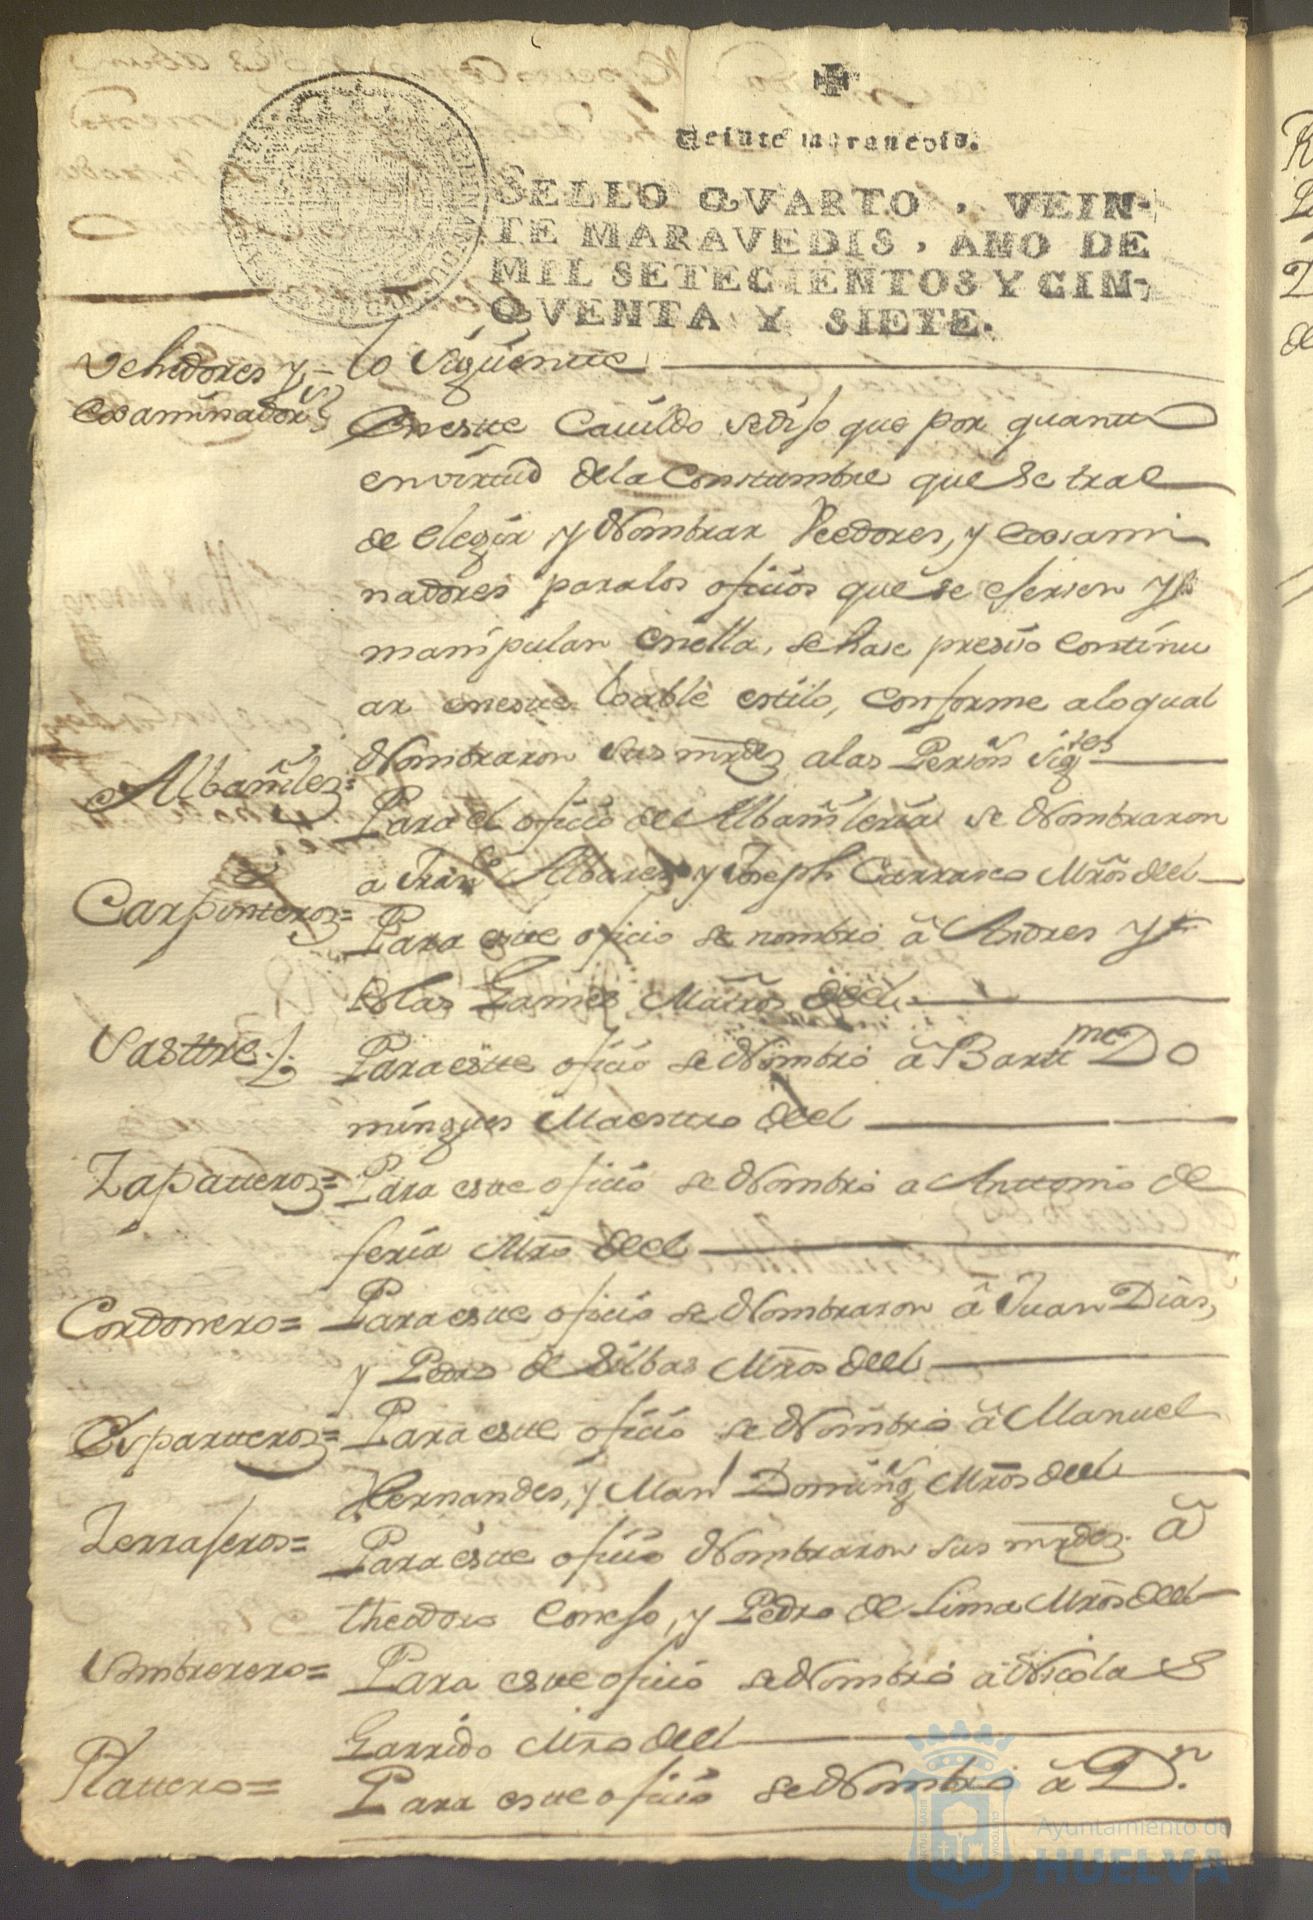 Veinte maravedis.
SELLO QVARTO, VEIN-
TE MARAVEDIS, AÑO DE
MIL SETECIENTOS Y CIN-
QVENTA Y SIETE.
Vehedores y = lo siguiente
Examinadores
En este Cavildo se dijo que por quanto
en virtud de la Constumbre que se trae
de elegir y Nombrar Veedores, y Exsami
nadores para los oficios que se ejersen y
manipulan en ella, se hase presiso continu
ar en este loable estilo, conforme a lo qual
Nombraron sus mrdes a las Person sigtes
Albañiles =
Para el oficio de Albañileria se Nombraron
a Franco Albares y Joseph Carrasco Mros de el
Carpinteros =
Para este oficio se nombró â Andres y
Blas Games Maeros de el
Sasttre
Para este oficio se Nombró â Bartme Do
mingues Maesttro de el
Zapatteros = Para este oficio se Nombró a Anttonio de
feria Mro de el
Cordonero = Para este oficio se Nombraron â Juan Dias,
y Pedro de Bilbas Mros de el
Esparteros = Para este oficio se Nombró â Manuel
Hernandes, y Manl Doming Mros de el
Zerrajeros =
Para este oficio Nombraron sus mrdes â
theodoro Conejo, y Pedro de Lima Mros de el
Sombrerero = Para este oficio se Nombró â Nicolas
Garrido Mro de el
Plattero =
Para este oficio se Nombró â Dn.
Ayuntamiento de
HUELVA